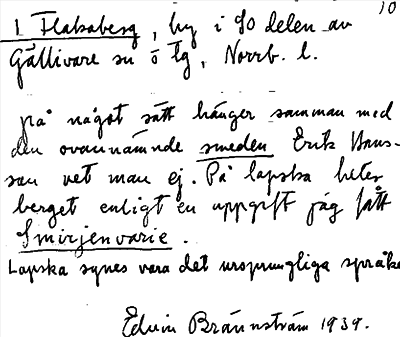 10
1 Flakaberg, by i SO delen av
Gällivare sn o tg, Norrb. l.
på något sätt hänger samman med
den ovannämnde smeden Erik Hans-
son vet man ej. På lapska heter
berget enligt en uppgift jag fått
Smirjenvarie.
Lapska synes vara det ursprungliga språke
Edvin Brännström 1939.